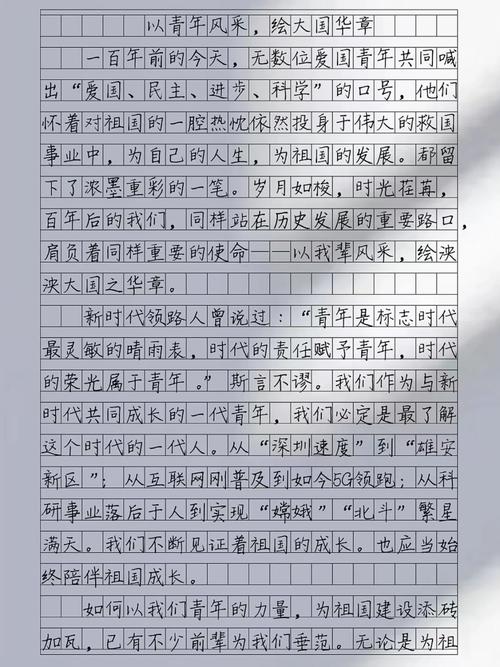 以青年风采，绘大国华章
一百年前的今天，无数位爱国青年共同喊
出“爱国、民主、进步、科学”的口号，他们
怀着对祖国的一腔热忱依然投身于伟大的救国
事业中，为自己的人生，为祖国的发展。都留
下了浓墨重彩的一笔。岁月如梭，时光荏苒，
百年后的我们，同样站在历史发展的重要路口，
肩负着同样重要的使命——以我辈风采，绘泱
泱大国之华章。
新时代领路人曾说过：“青年是标志时代
最灵敏的晴雨表，时代的责任赋予青年，时代
的荣光属于青年。”斯言不谬。我们作为与新
时代共同成长的一代青年，我们必定是最了解
这个时代的一代人。从“深圳速度”到“雄安
新区”；从互联网刚普及到如今5G领跑；从科
研事业落后于人到实现“嫦娥”“北斗”繁星
满天。我们不断见证着祖国的成长。也应当始
终陪伴祖国成长。
如何以我们青年的力量，为祖国建设添砖
加瓦，已有不少前辈为我们垂范。无论是为祖